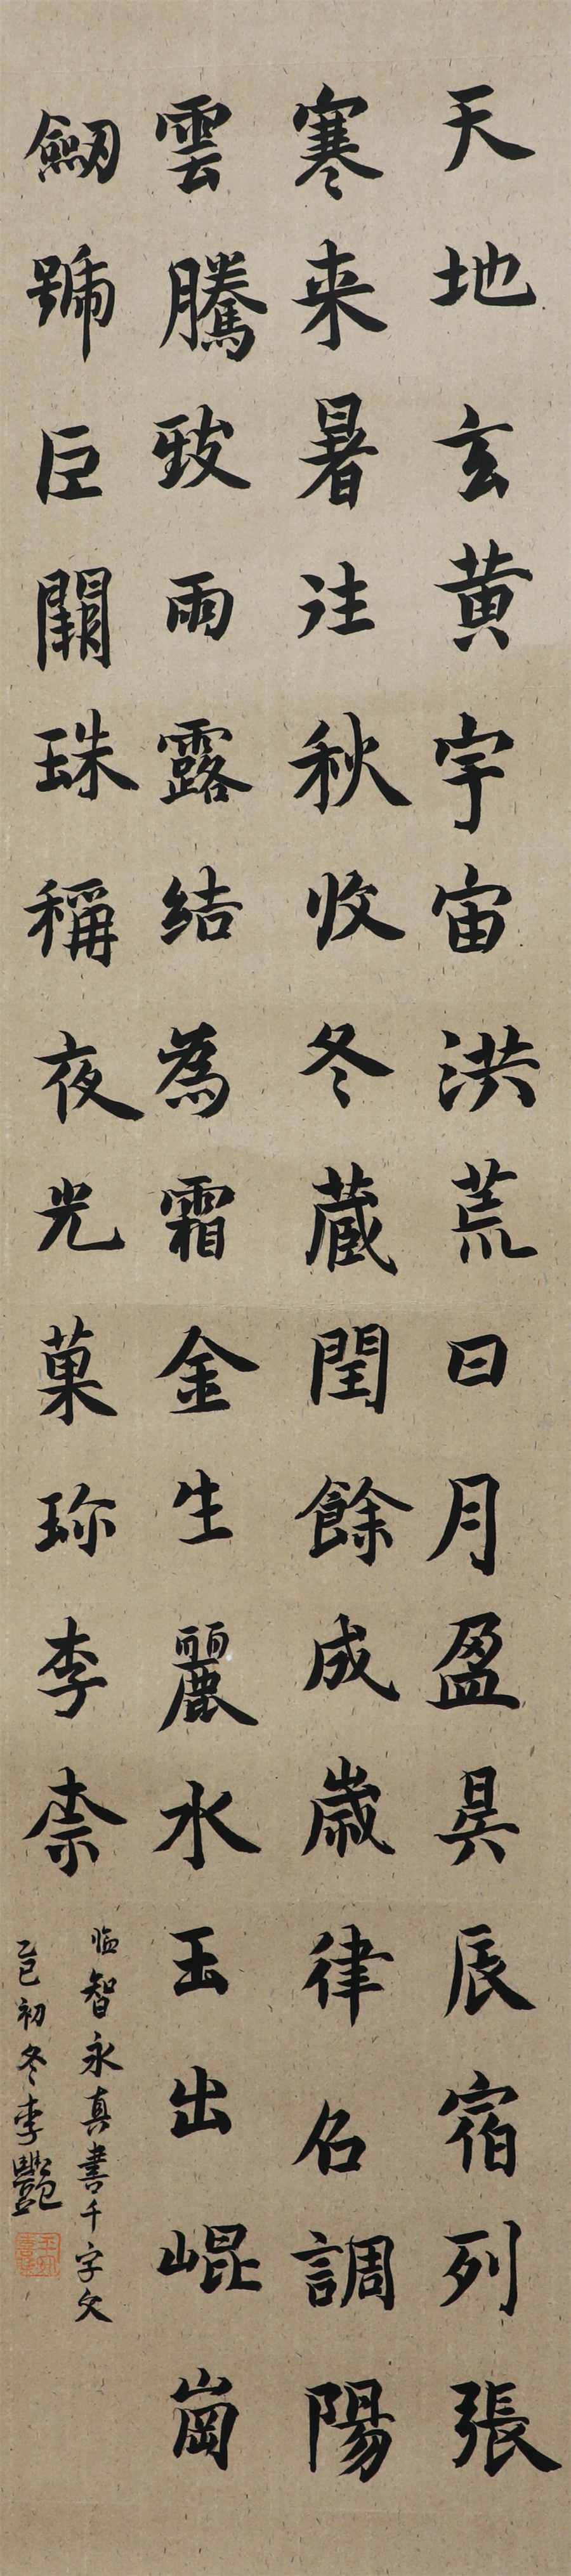 天地玄黄宇宙洪荒日月盈昃辰宿列張
寒来暑往秋收冬蔵閏餘成歲律召調陽
雲騰致雨露结為霜金生麗水玉出崐崗
劒號巨闕珠稱夜光菓珎李柰
临智永真書千字文
乙巳初冬李艷